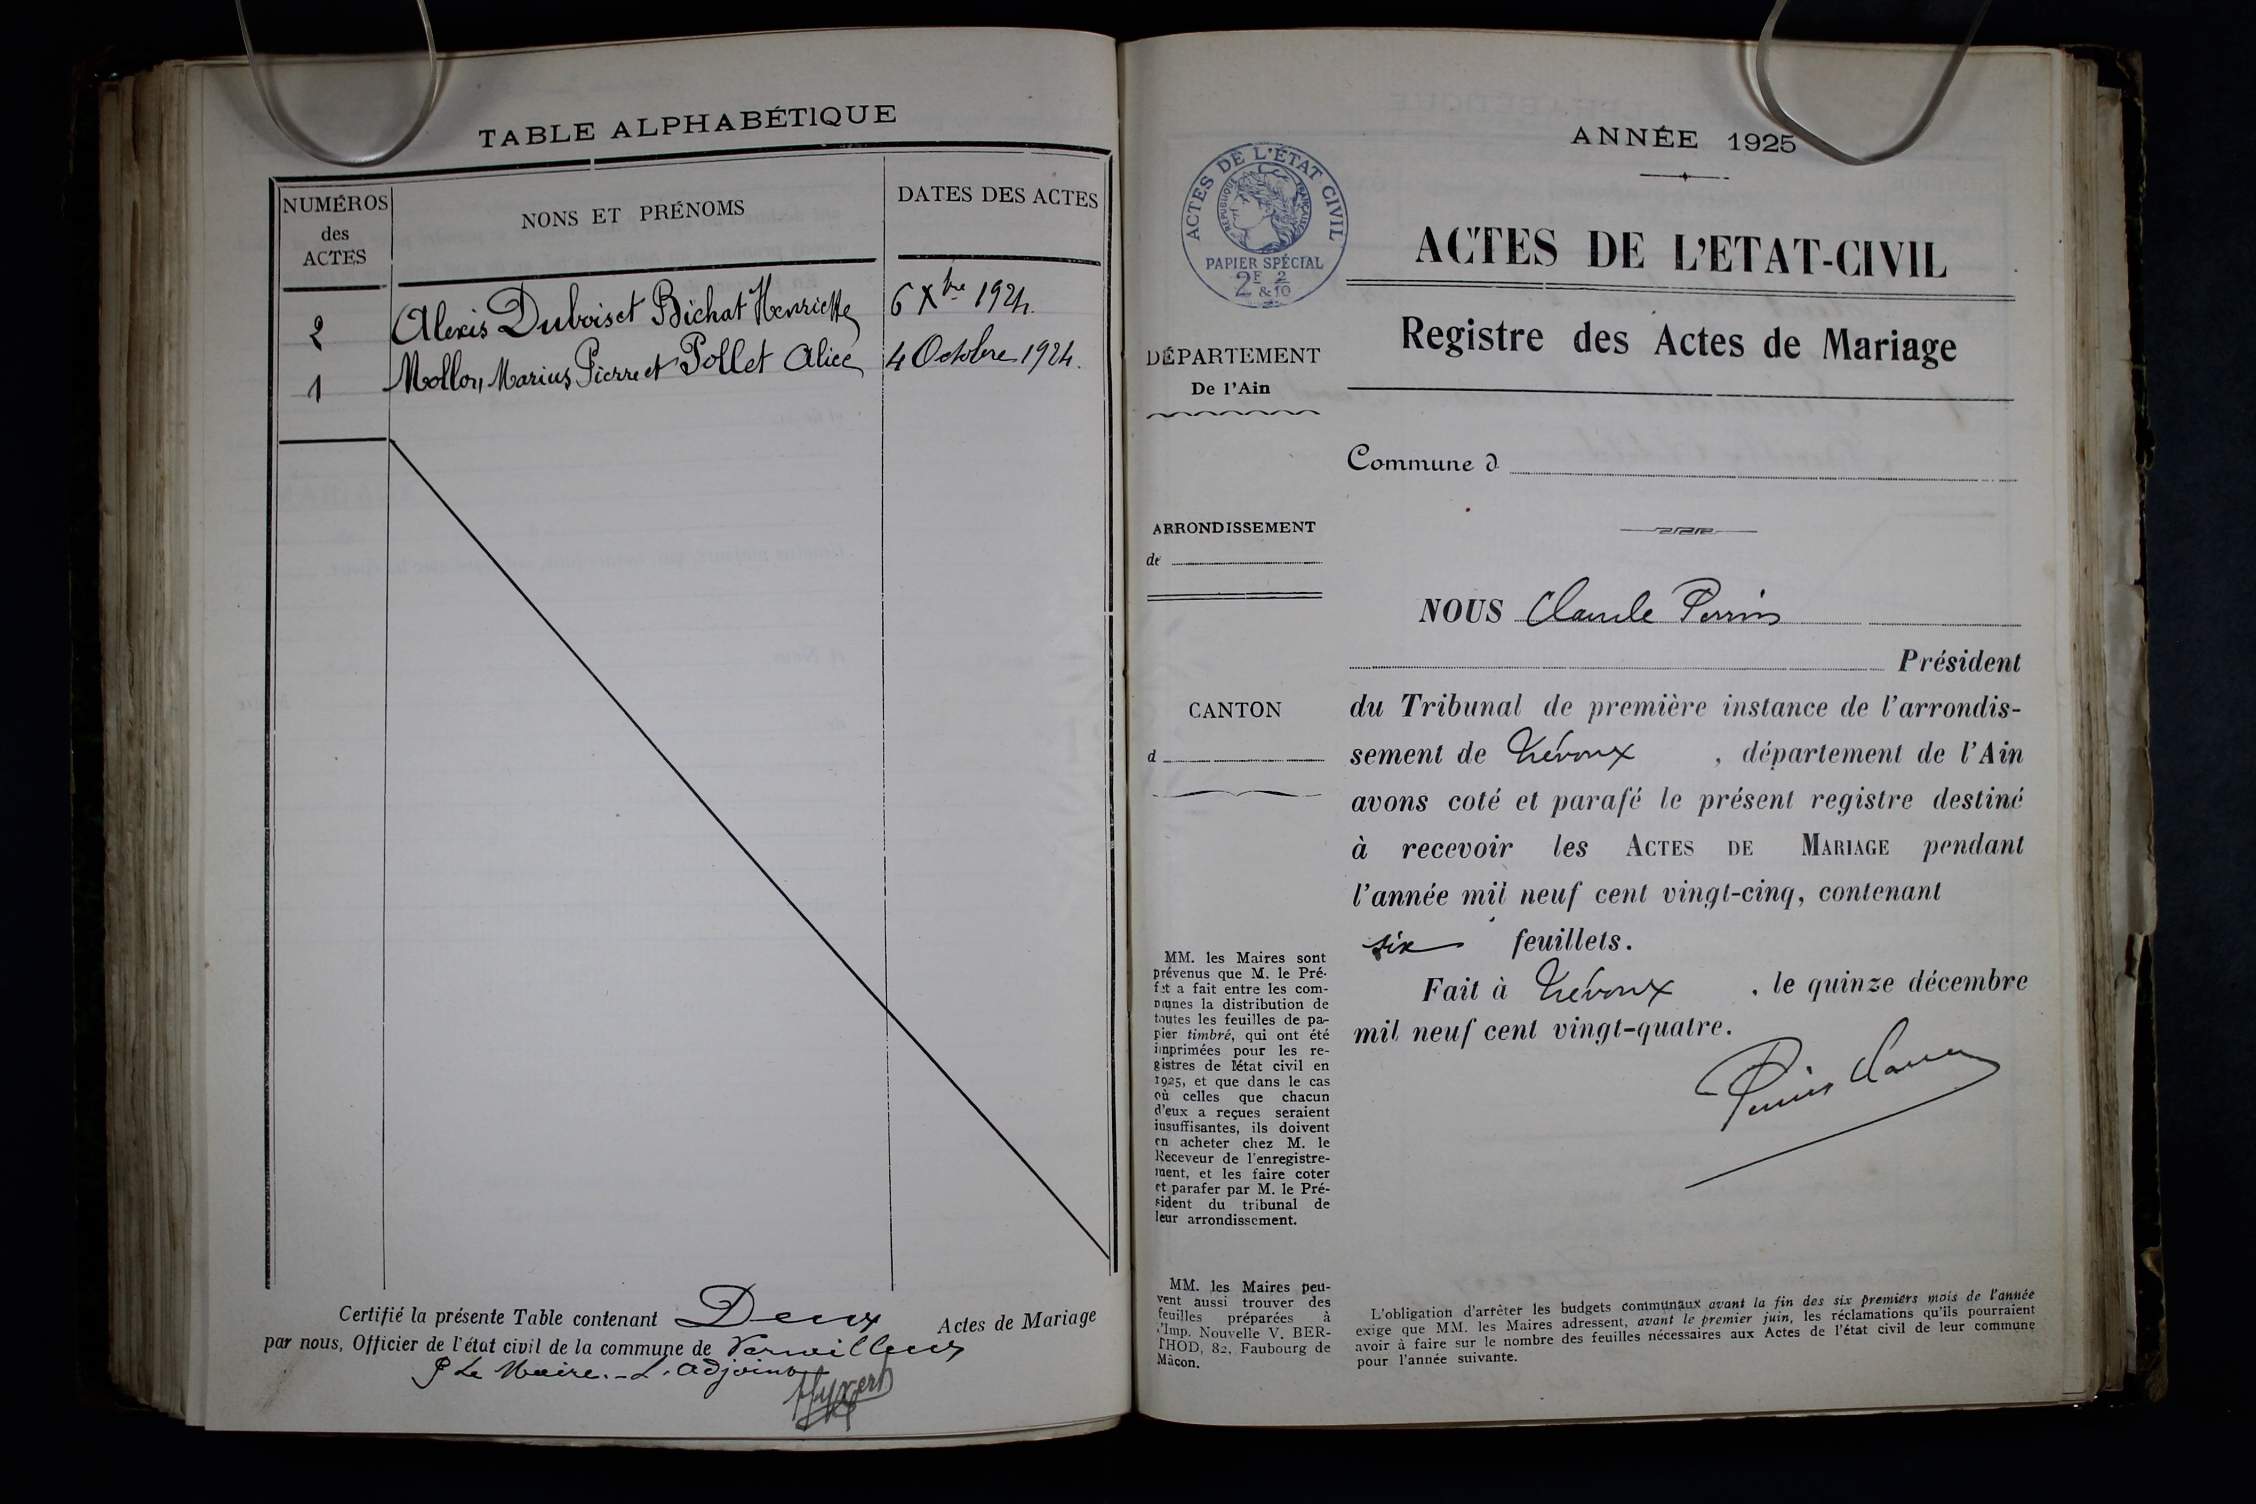 TABLE ALPHABÉTIQUE
NUMÉROS
des
ACTES
NONS ET PRÉNOMS
DATES DES ACTES
2 Alexis Dubois et Bichat Henriette 6 Xbre 1924.
1 Mollon, Marius Pierre et Pollet Alice 4 Octobre 1924.
Certifié la présente Table contenant Deux Actes de Mariage
par nous, Officier de l'état civil de la commune de Versailleux
P Le Maire.- L'adjoint
ANNÉE 1925
ACTES DE L'ÉTAT CIVIL
RÉPUBLIQUE FRANÇAISE
PAPIER SPÉCIAL
2F & 2/10
ACTES DE L'ETAT-CIVIL
Registre des Actes de Mariage
DÉPARTEMENT
De l'Ain
Commune d
ARRONDISSEMENT
de
CANTON
d
NOUS Claude Perrin
Président
du Tribunal de première instance de l'arrondis-
sement de Trévoux , département de l'Ain
avons coté et parafé le présent registre destiné
à recevoir les ACTES DE MARIAGE pendant
l'année mil neuf cent vingt-cinq, contenant
six feuillets.
Fait à Trévoux , le quinze décembre
mil neuf cent vingt-quatre.
Perrin Claude
MM. les Maires sont
prévenus que M. le Pré-
fet a fait entre les com-
munes la distribution de
toutes les feuilles de pa-
pier timbré, qui ont été
imprimées pour les re-
gistres de l'état civil en
1925, et que dans le cas
où celles que chacun
d'eux a reçues seraient
insuffisantes, ils doivent
en acheter chez M. le
Receveur de l'enregistre-
ment, et les faire coter
et parafer par M. le Pré-
sident du tribunal de
leur arrondissement.
MM. les Maires peu-
vent aussi trouver des
feuilles préparées à
l'Imp. Nouvelle V. BER-
THOD, 82, Faubourg de
Mâcon.
L'obligation d'arrêter les budgets communaux avant la fin des six premiers mois de l'année
exige que MM. les Maires adressent, avant le premier juin, les réclamations qu'ils pourraient
avoir à faire sur le nombre des feuilles nécessaires aux Actes de l'état civil de leur commune
pour l'année suivante.